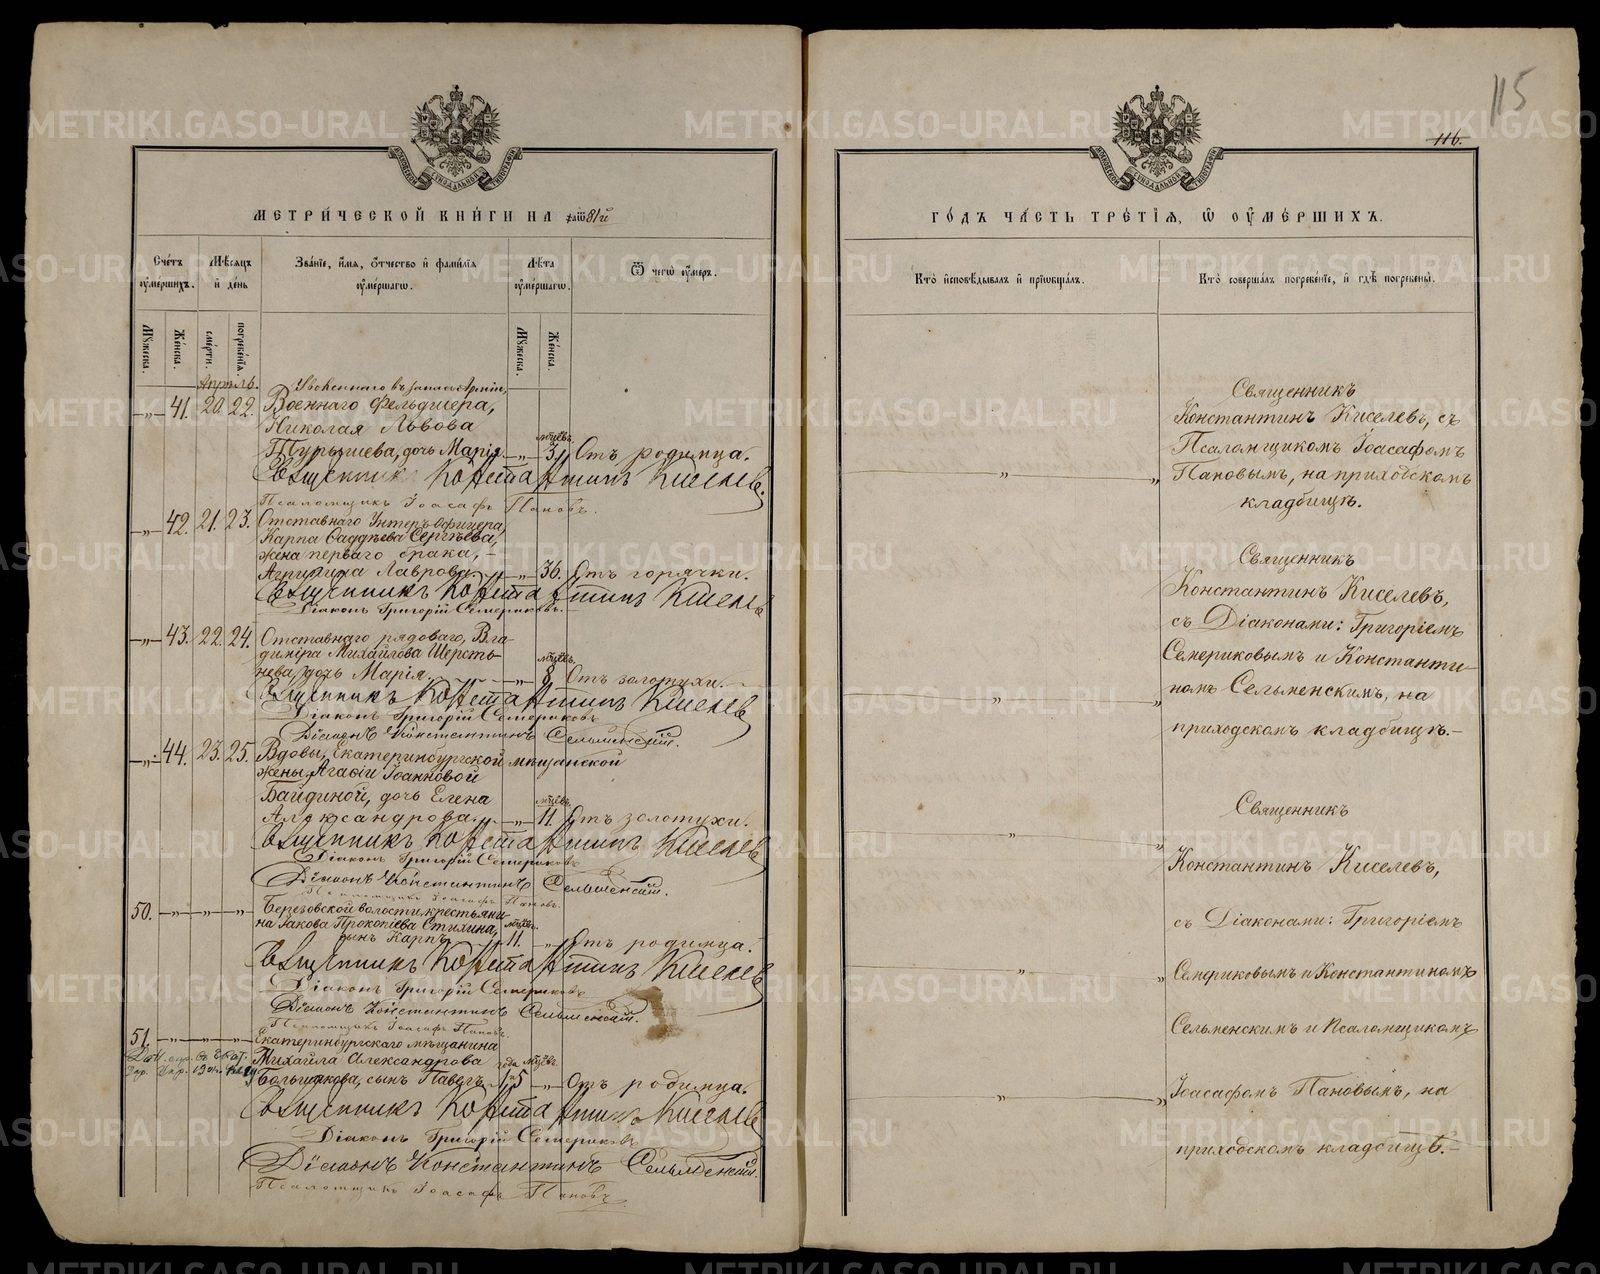 115
116.
МЕТРИЧЕСКОЙ КНИГИ НА 81й
ГОДЪ ЧАСТЬ ТРЕТІЯ, Ѿ ОУМЕРШИХЪ.
Счетъ оумершихъ.
Мѣсяцъ и день
Званіе, имя, отчество и фамилія оумершагѡ.
Лѣта оумершагѡ.
Ѿ чегѡ оумеръ.
Кто исповѣдывалъ и приобщалъ.
Кто совершалъ погребеніе, и гдѣ погребены.
Мꙋжеска.
Женска.
смерти.
погребенія.
Мꙋжеска.
Женска.
Апрѣль.
Уволеннаго въ запасъ Арміи,
—„— 41. 20. 22. Военнаго Фельдшера,
Николая Львова
мцевъ.
Турышева, дочь Марія. —„— 3. Отъ родимца.
Священникъ Константинъ Киселевъ.
Псаломщикъ Іоасафъ Пановъ.
—„— 42. 21. 23. Отставнаго Унтеръ-офицера,
Карпа Фаддѣева Сергѣева,
жена перваго брака, –
Агрипина Лаврова. —„— 36. Отъ горячки.
Священникъ Константинъ Киселевъ
Діаконъ Григорій Семериковъ.
—„— 43. 22. 24. Отставнаго рядоваго, Вла-
диміра Михайлова Шерсть-
мцевъ.
нева, дочь Марія. —„— 8. Отъ золотухи.
Священникъ Константинъ Киселевъ
Діаконъ Григорій Семериковъ
Діаконъ Константинъ Сельменскій.
—„— 44. 23. 25. Вдовы, Екатеринбургской мѣщанской
жены Агафіи Іоанновой
Байдиной, дочь Елена
мцевъ.
Александрова. —„— 11. Отъ золотухи.
Священникъ Константинъ Киселевъ
Діаконъ Григорій Семериковъ
Діаконъ Константинъ Сельменскій.
Псаломщикъ Іоасафъ Пановъ.
50. —„— —„— —„— Березовской волости, крестьяни-
на Іакова Прокопіева Стихина,
мцевъ.
сынъ Карпъ. 11. —„— Отъ родимца.
Священникъ Константинъ Киселевъ
Діаконъ Григорій Семериковъ
Діаконъ Константинъ Сельменскій.
Псаломщикъ Іоасафъ Пановъ.
51. —„— —„— —„— Екатеринбургскаго мѣщанина
Михайла Александрова
года мцевъ.
Большакова, сынъ Павелъ. 1 5 —„— Отъ родимца.
Священникъ Константинъ Киселевъ
Діаконъ Григорій Семериковъ
Діаконъ Константинъ Сельменскій.
Псаломщикъ Іоасафъ Пановъ
Священникъ
Константинъ Киселевъ, съ
Псаломщикомъ Іоасафомъ
Пановымъ, на приходскомъ
кладбищѣ.
Священникъ
Константинъ Киселевъ,
съ Діаконами: Григоріемъ
Семериковымъ и Константи-
номъ Сельменскимъ, на
приходскомъ кладбищѣ.–
Священникъ
Константинъ Киселевъ,
съ Діаконами: Григоріемъ
Семриковымъ и Константиномъ
Сельменскимъ и Псаломщикомъ
Іоасафомъ Пановымъ, на
приходскомъ кладбищѣ.–
METRIKI.GASO-URAL.RU